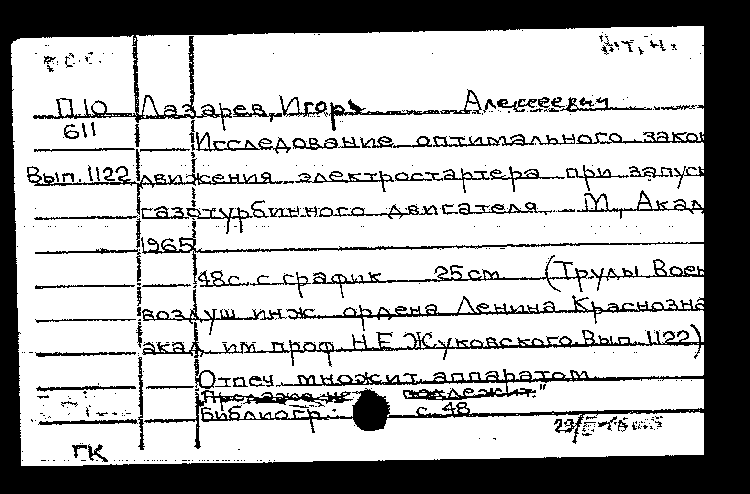 П10 Лазарев, Игорь Алексеевич
611
Исследование оптимального
Вып. 1122 движения электростартера при
газотурбинного двигателя М, Акад
1965
48с. с график 25см (Труды
воздуш инж. ордена Ленина
акад им проф. Н.Е Жуковского. Вып. 1122)
Отпеч. множит. аппаратом
Продаже не подлежит."
Библиогр.: с. 48
ГК